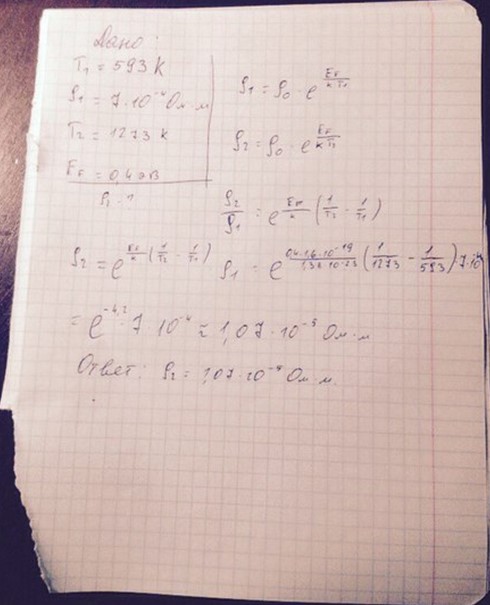 Дано:
T₁ = 593 K
ρ₁ = 7·10⁻⁴ Ом·м
T₂ = 1273 K
E_F = 0,4 эВ
ρ₂ - ?
ρ₁ = ρ₀ · e^(E_F/(kT₁))
ρ₂ = ρ₀ · e^(E_F/(kT₂))
ρ₂/ρ₁ = e^(E_F/k (1/T₂ - 1/T₁))
ρ₂ = e^(E_F/k (1/T₂ - 1/T₁)) ρ₁ = e^(0,4·1,6·10⁻¹⁹/1,38·10⁻²³ (1/1273 - 1/593)) 7·10⁻⁴
= e^(-4,2) · 7·10⁻⁴ ≈ 1,07·10⁻⁵ Ом·м
Ответ: ρ₂ = 1,07·10⁻⁵ Ом·м.